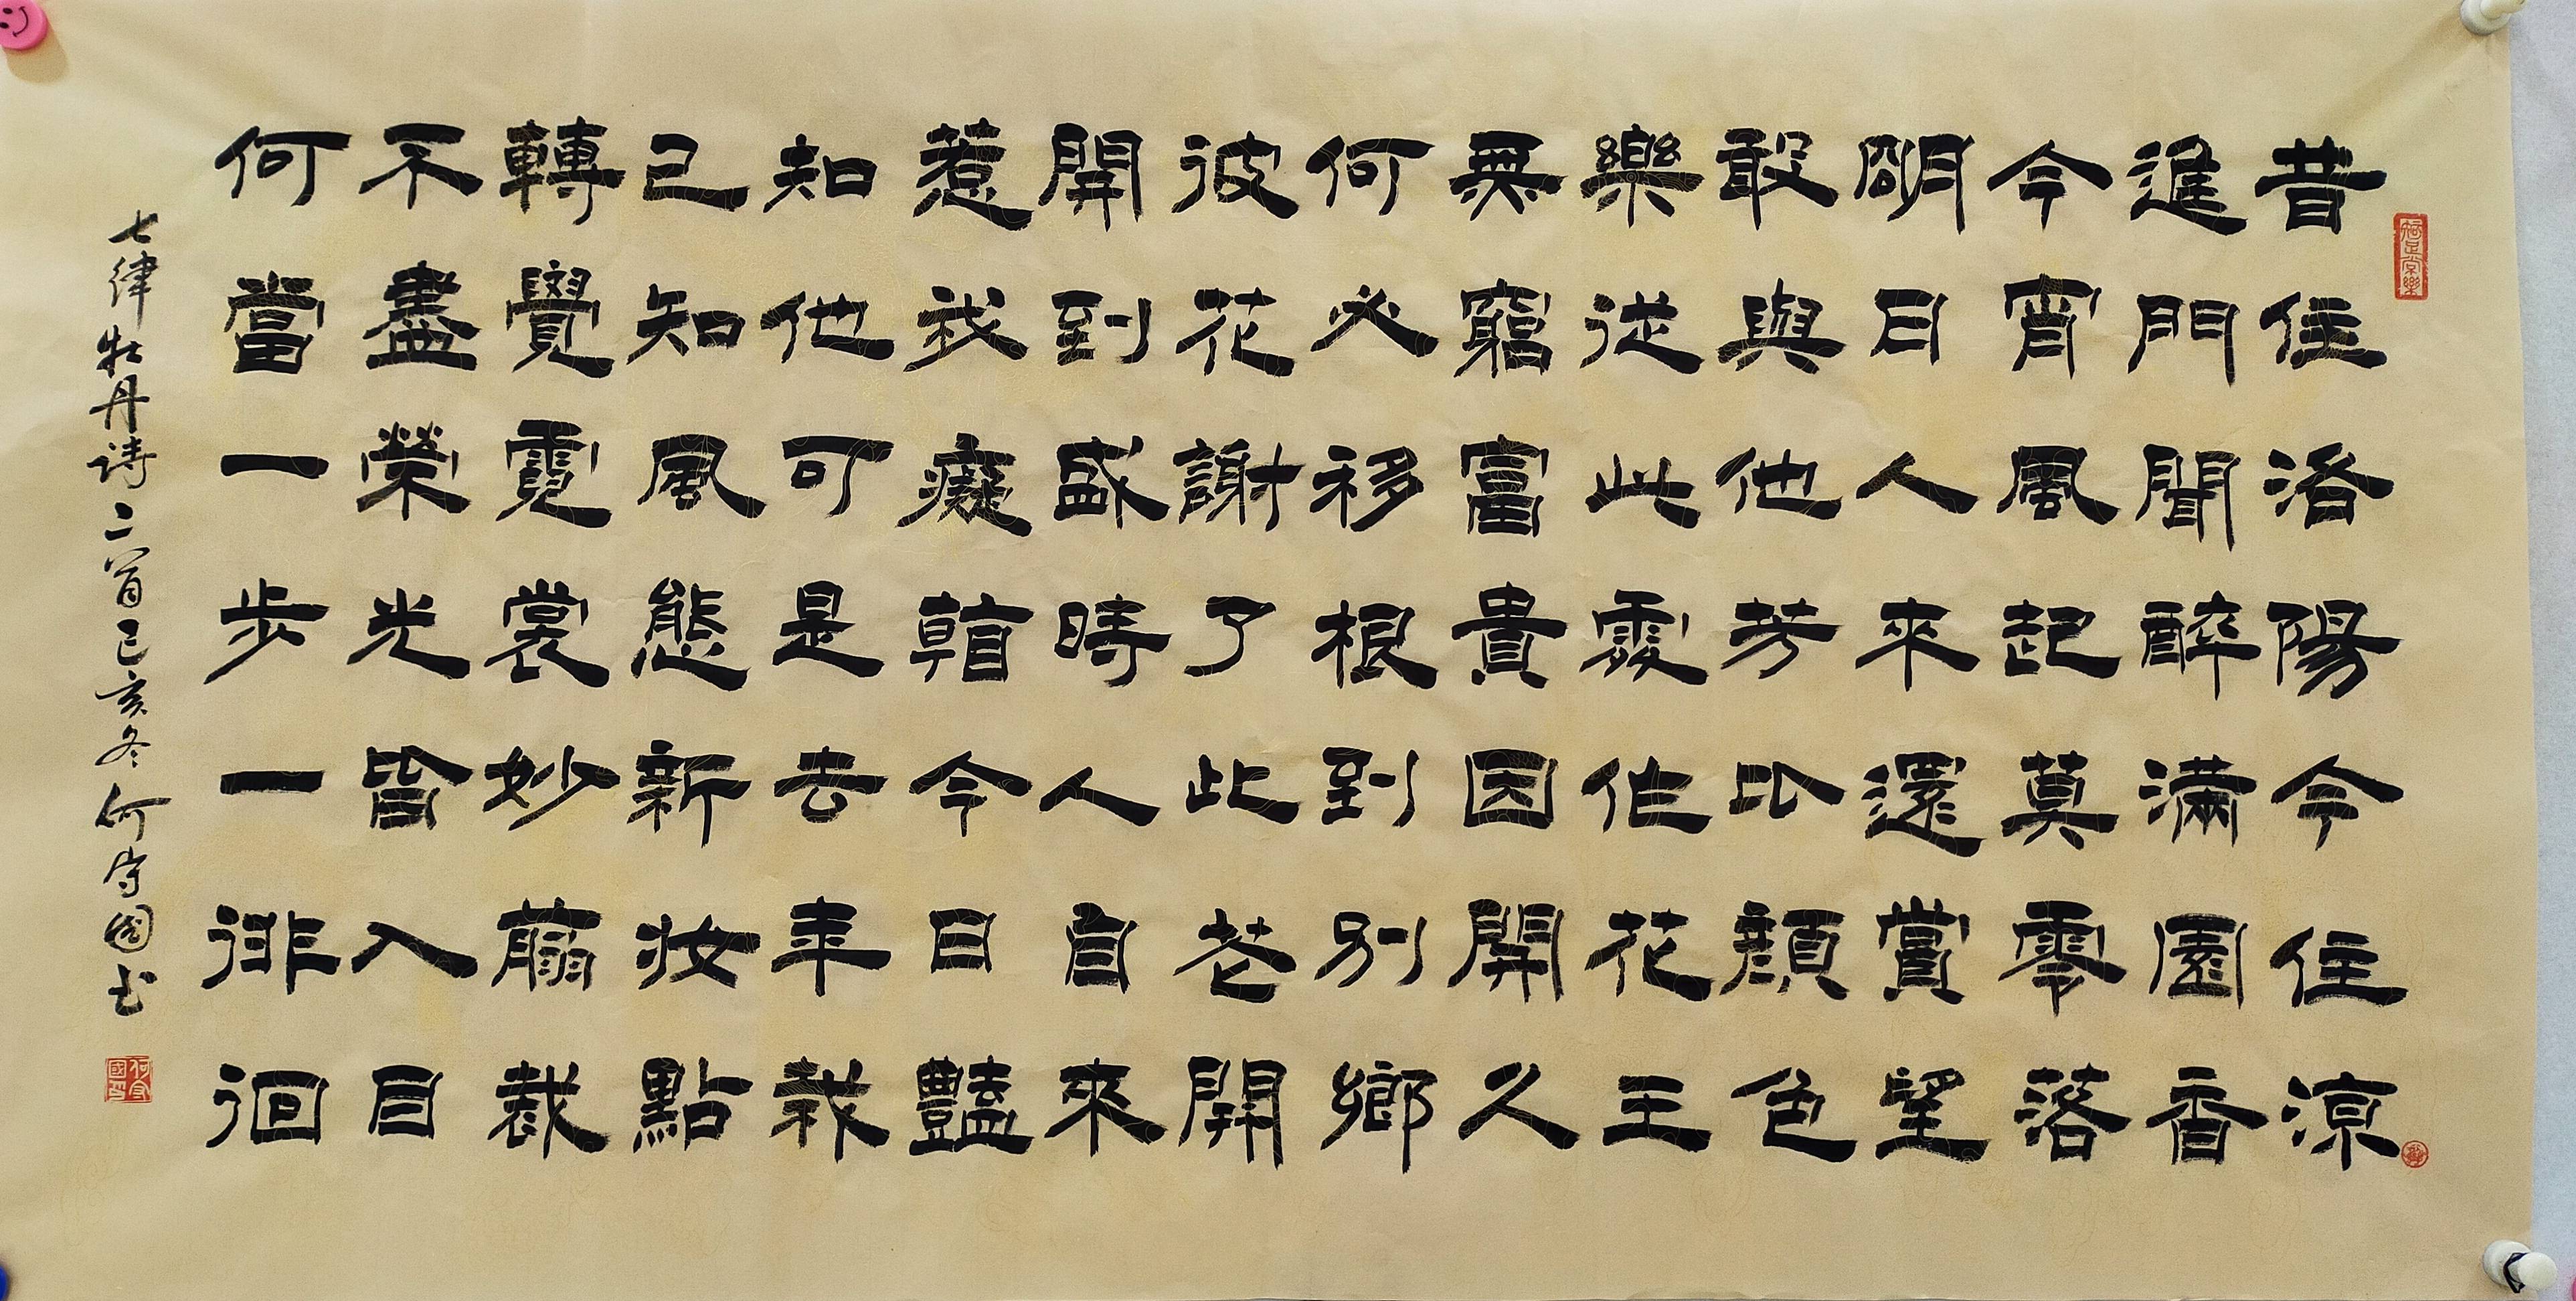 昔住洛陽今住涼
進門聞醉滿園香
今宵風起莫零落
明日人來還賞望
敢與他芳比顏色
樂從此處作花王
無窮富貴因開久
何必移根到別鄉
彼花謝了此芲開
開到盛時人自來
惹我癡看今日豔
知他可是去年栽
已知風態新妝點
轉覺霓裳妙翦裁
不盡榮光皆入目
何當一步一徘徊
七律牡丹詩二首己亥冬何守國书
知足常樂
何守國印